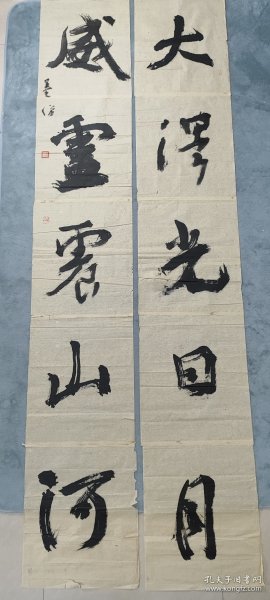 大澤光日月
威靈震山河
孔夫子旧书网